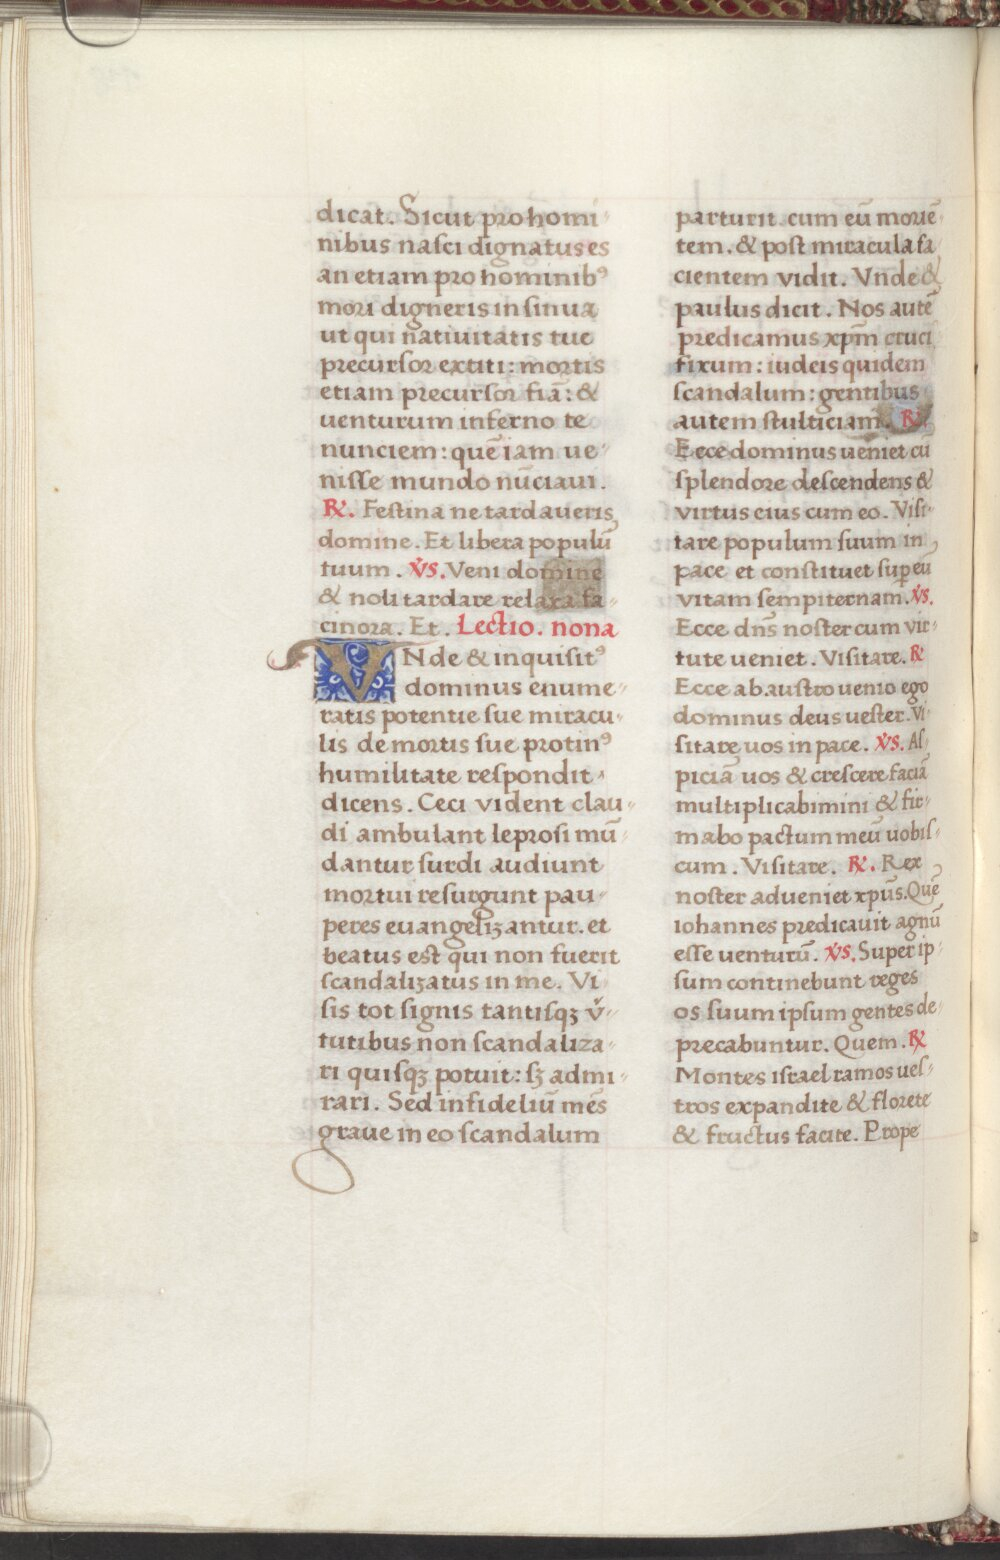 dicat. Sicut pro homi-
nibus nasci dignatus es
an etiam pro hominibꝰ
mori digneris insinua
ut qui natiuitatis tue
precursor extiti: mortis
etiam precursor fiā: &
uenturum inferno te
nunciem: quē iam ue-
nisse mundo nūciaui.
℟. Festina ne tardaueris
domine. Et libera populū
tuum. V̇S. Veni domine
& noli tardare relaxa fa-
cinora. Et. Lectio. nona
VNde & inquisitꝰ
dominus enume-
ratis potentie sue miracu-
lis de mortis sue protinꝰ
humilitate respondit
dicens. Ceci vident clau-
di ambulant leprosi mū-
dantur surdi audiunt
mortui resurgunt pau-
peres euangelizantur. et
beatus est qui non fuerit
scandalizatus in me. Vi-
sis tot signis tantisqꝫ v̌-
tutibus non scandaliza-
ri quisqꝫ potuit: sꝫ admi-
rari. Sed infideliū mēs
graue in eo scandalum
parturit. cum eū moriē-
tem. & post miracula fa-
cientem vidit. Vnde &
paulus dicit. Nos autē
predicamus xp̄m cruci
fixum: iudeis quidem
scandalum: gentibus
autem stulticiam. ℟.
Ecce dominus ueniet cū
splendore descendens &
virtus eius cum eo. Visi-
tare populum suum in
pace et constituet suꝑ eū
vitam sempiternam. V̇S.
Ecce dn̄s noster cum vir-
tute ueniet. Visitare. ℟
Ecce ab austro uenio ego
dominus deus uester. Vi-
sitare uos in pace. V̇S. As-
piciā uos & crescere faciā
multiplicabimini & fir-
mabo pactum meū uobis-
cum. Visitare. ℟. Rex
noster adueniet xp̄us. Quē
iohannes predicauit agnū
esse uenturū. V̇S. Super ip-
sum continebunt reges
os suum ipsum gentes de-
precabuntur. Quem. ℟
Montes israel ramos ues-
tros expandite & florete
& fructus facite. Prope